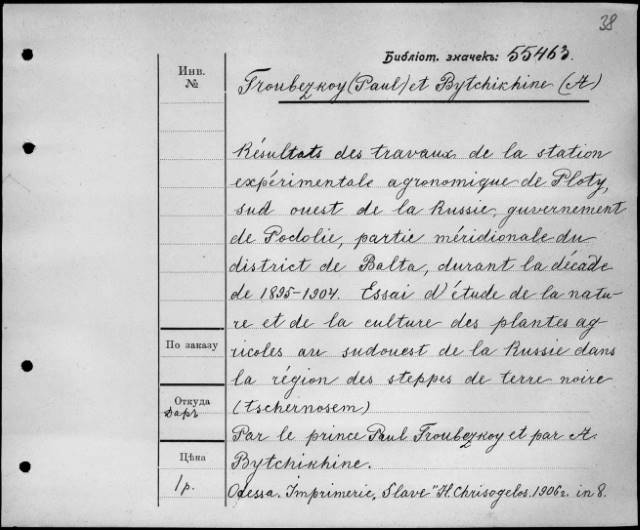 38
Библіот. значекъ: 55463.
Инв.
№
Troubezkoy (Paul) et Bytchikhine (A)
Résultats des travaux de la station
expérimentale agronomique de Ploty,
sud ouest de la Russie, guvernement
de Podolie, partie méridionale du
district de Balta, durant la décade
de 1895-1904. Essai d'étude de la natu-
re et de la culture des plantes ag
ricoles au sudouest de la Russie dans
По заказу
la région des steppes de terre noire
Откуда
Даръ
(tschernosem)
Par le prince Paul Troubezkoy et par A.
Цѣна
Bytchikhine.
1р.
Odessa. Imprimerie, Slave" H. Chrisogelos. 1906г. in 8.